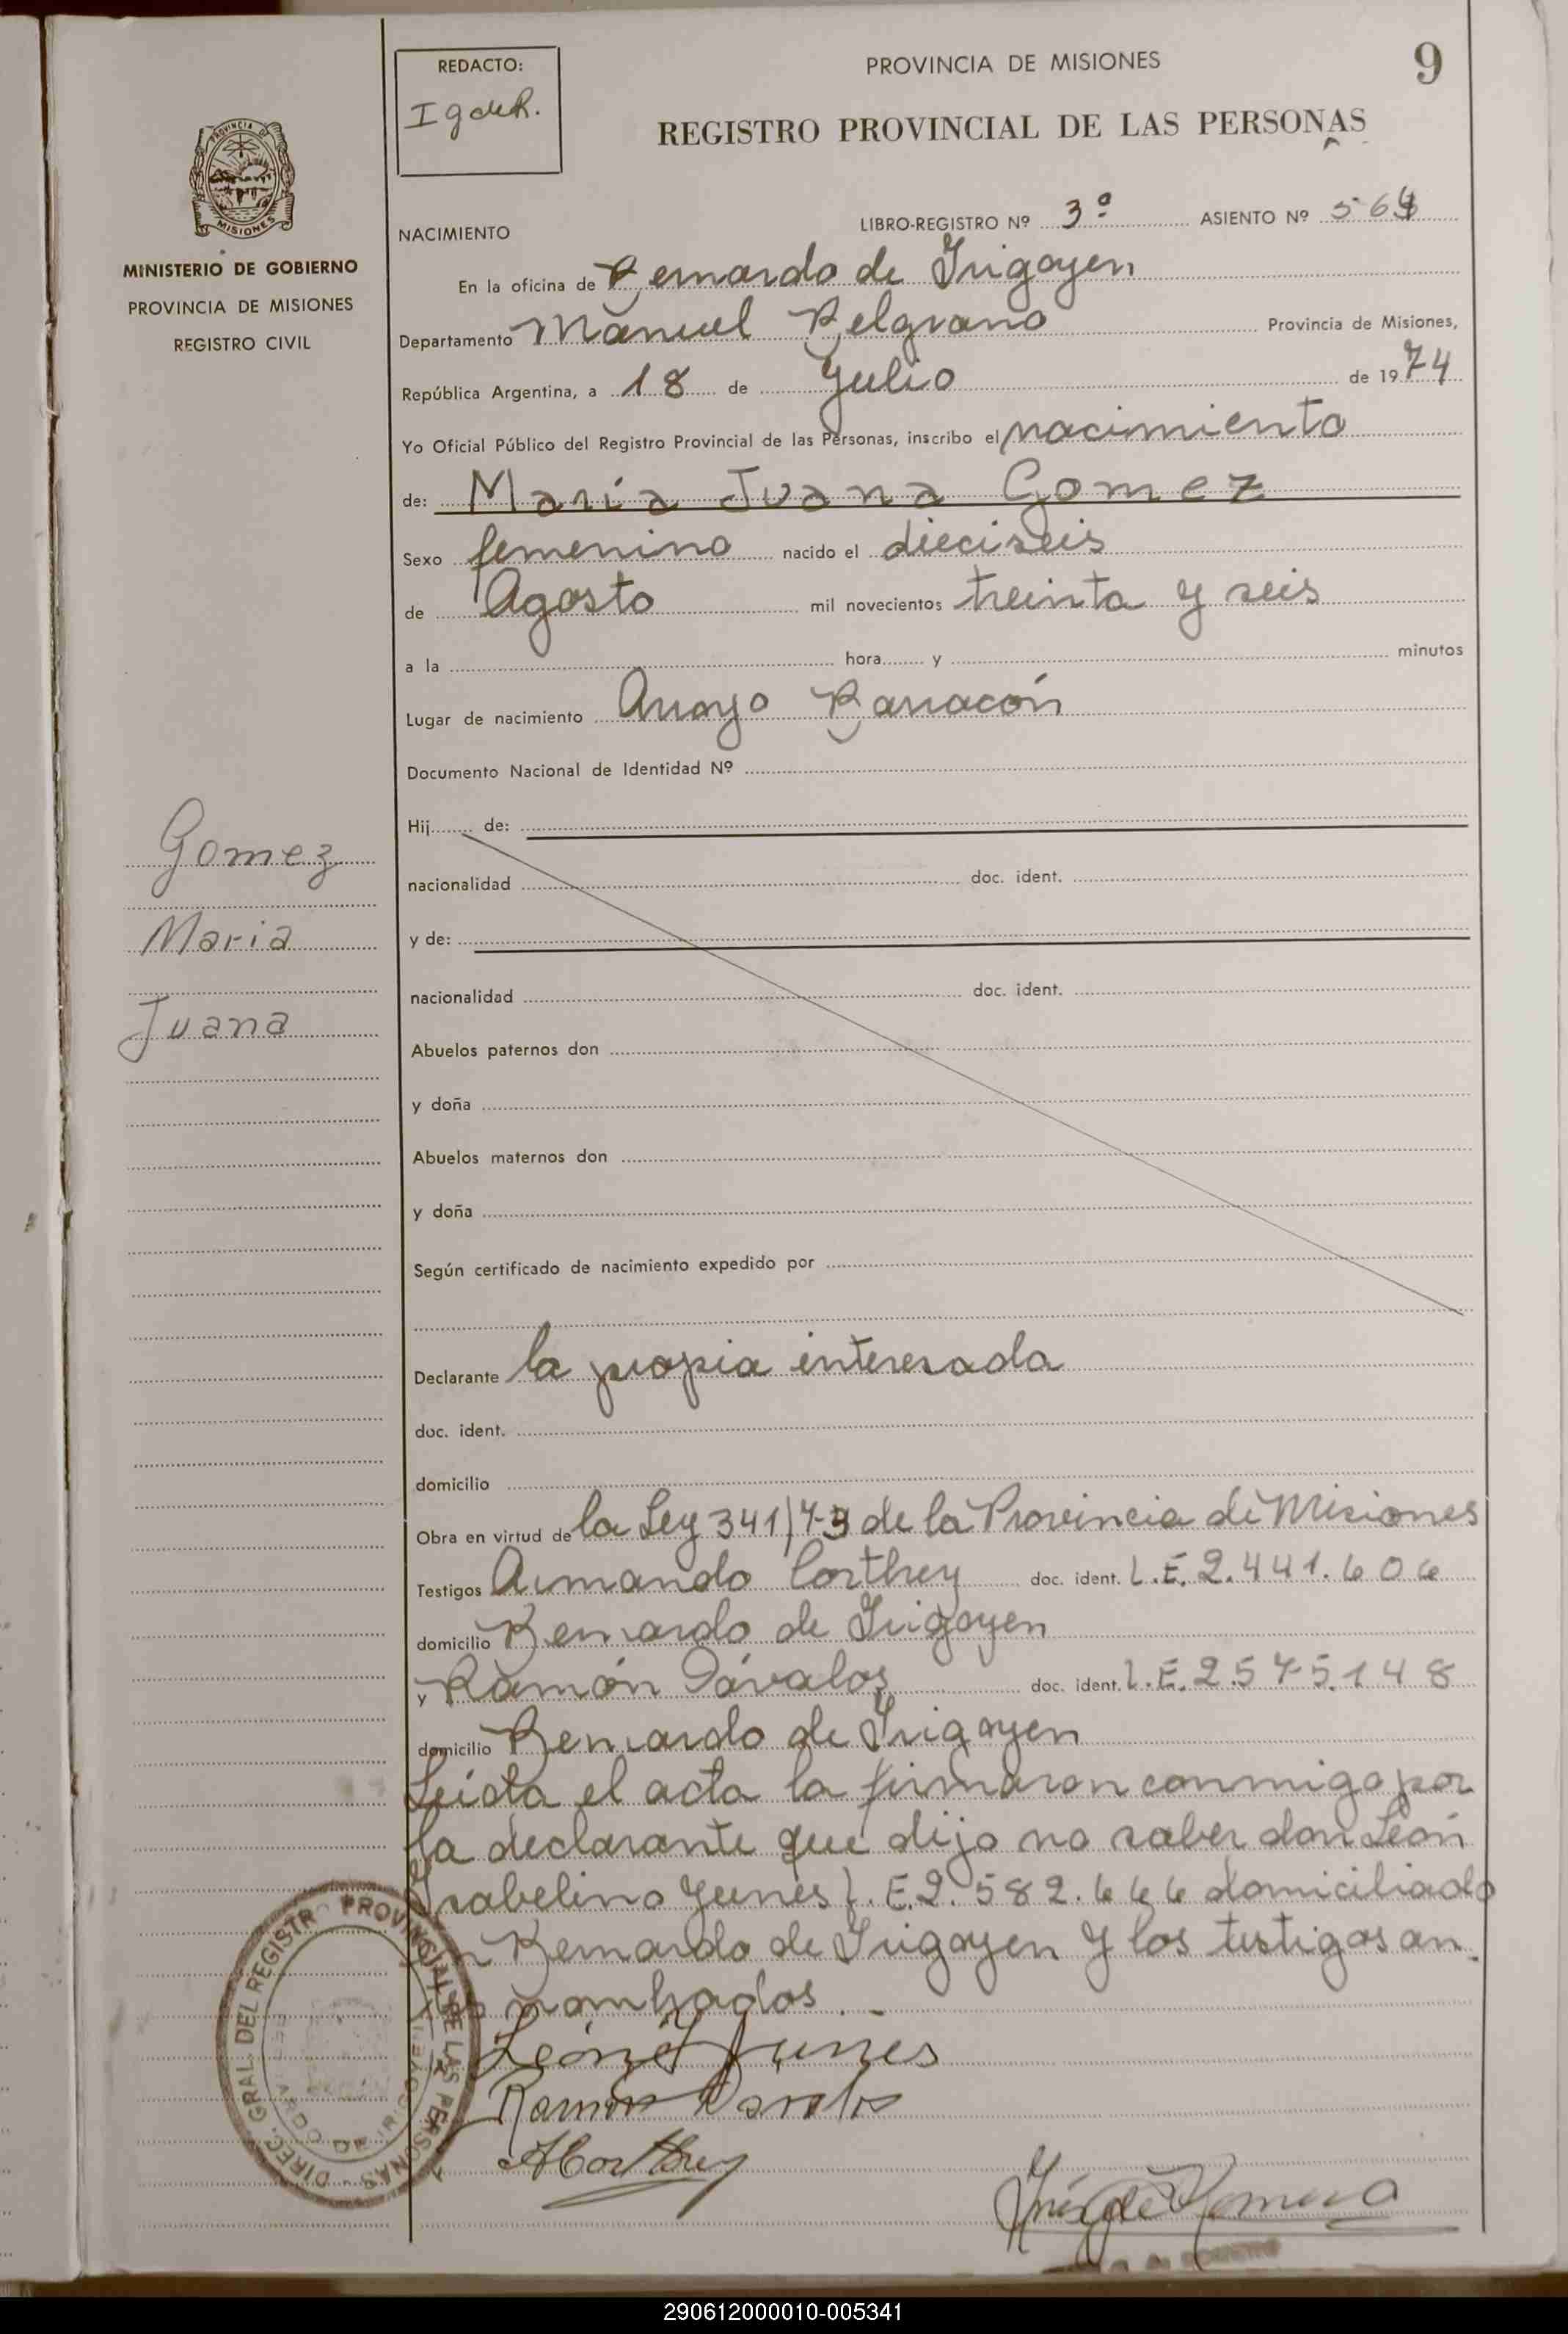 REDACTO:
I g de R.
PROVINCIA DE MISIONES
9
REGISTRO PROVINCIAL DE LAS PERSONAS
PROVINCIA DE
MISIONES
MINISTERIO DE GOBIERNO
PROVINCIA DE MISIONES
REGISTRO CIVIL
NACIMIENTO
LIBRO-REGISTRO Nº 3º ASIENTO Nº
En la oficina de Bernardo de Irigoyen
Departamento Manuel Belgrano Provincia de Misiones,
República Argentina, a 18 de Julio de 1974
Yo Oficial Público del Registro Provincial de las Personas, inscribo el nacimiento
de: María Juana Gomez
Sexo femenino nacido el dieciseis
de Agosto mil novecientos treinta y seis
a la hora y minutos
Lugar de nacimiento Arroyo Barracón
Documento Nacional de Identidad Nº
Hij de:
nacionalidad doc. ident.
y de:
nacionalidad doc. ident.
Abuelos paternos don
y doña
Abuelos maternos don
y doña
Según certificado de nacimiento expedido por
Gomez
Maria
Juana
Declarante la propia interesada
doc. ident.
domicilio
Obra en virtud de la Ley 341/73 de la Provincia de Misiones
Testigos Armando Corthey doc. ident. L.E. 2.441.606
domicilio Bernardo de Irigoyen
y Ramón Dávalos doc. ident. L.E. 2.575.148
domicilio Bernardo de Irigoyen
Leída el acta la firmaron conmigo por
la declarante que dijo no saber don León
Isabelino Yunes L.E. 2.582.666 domiciliado
en Bernardo de Irigoyen y los testigos an-
tes nombrados.-
León I Yunes
Ramón Dávalos
ACorthey
Inés g de Romero
DIREC. GRAL. DEL REGISTRO PROVINCIAL DE LAS PERSONAS
290612000010-005341